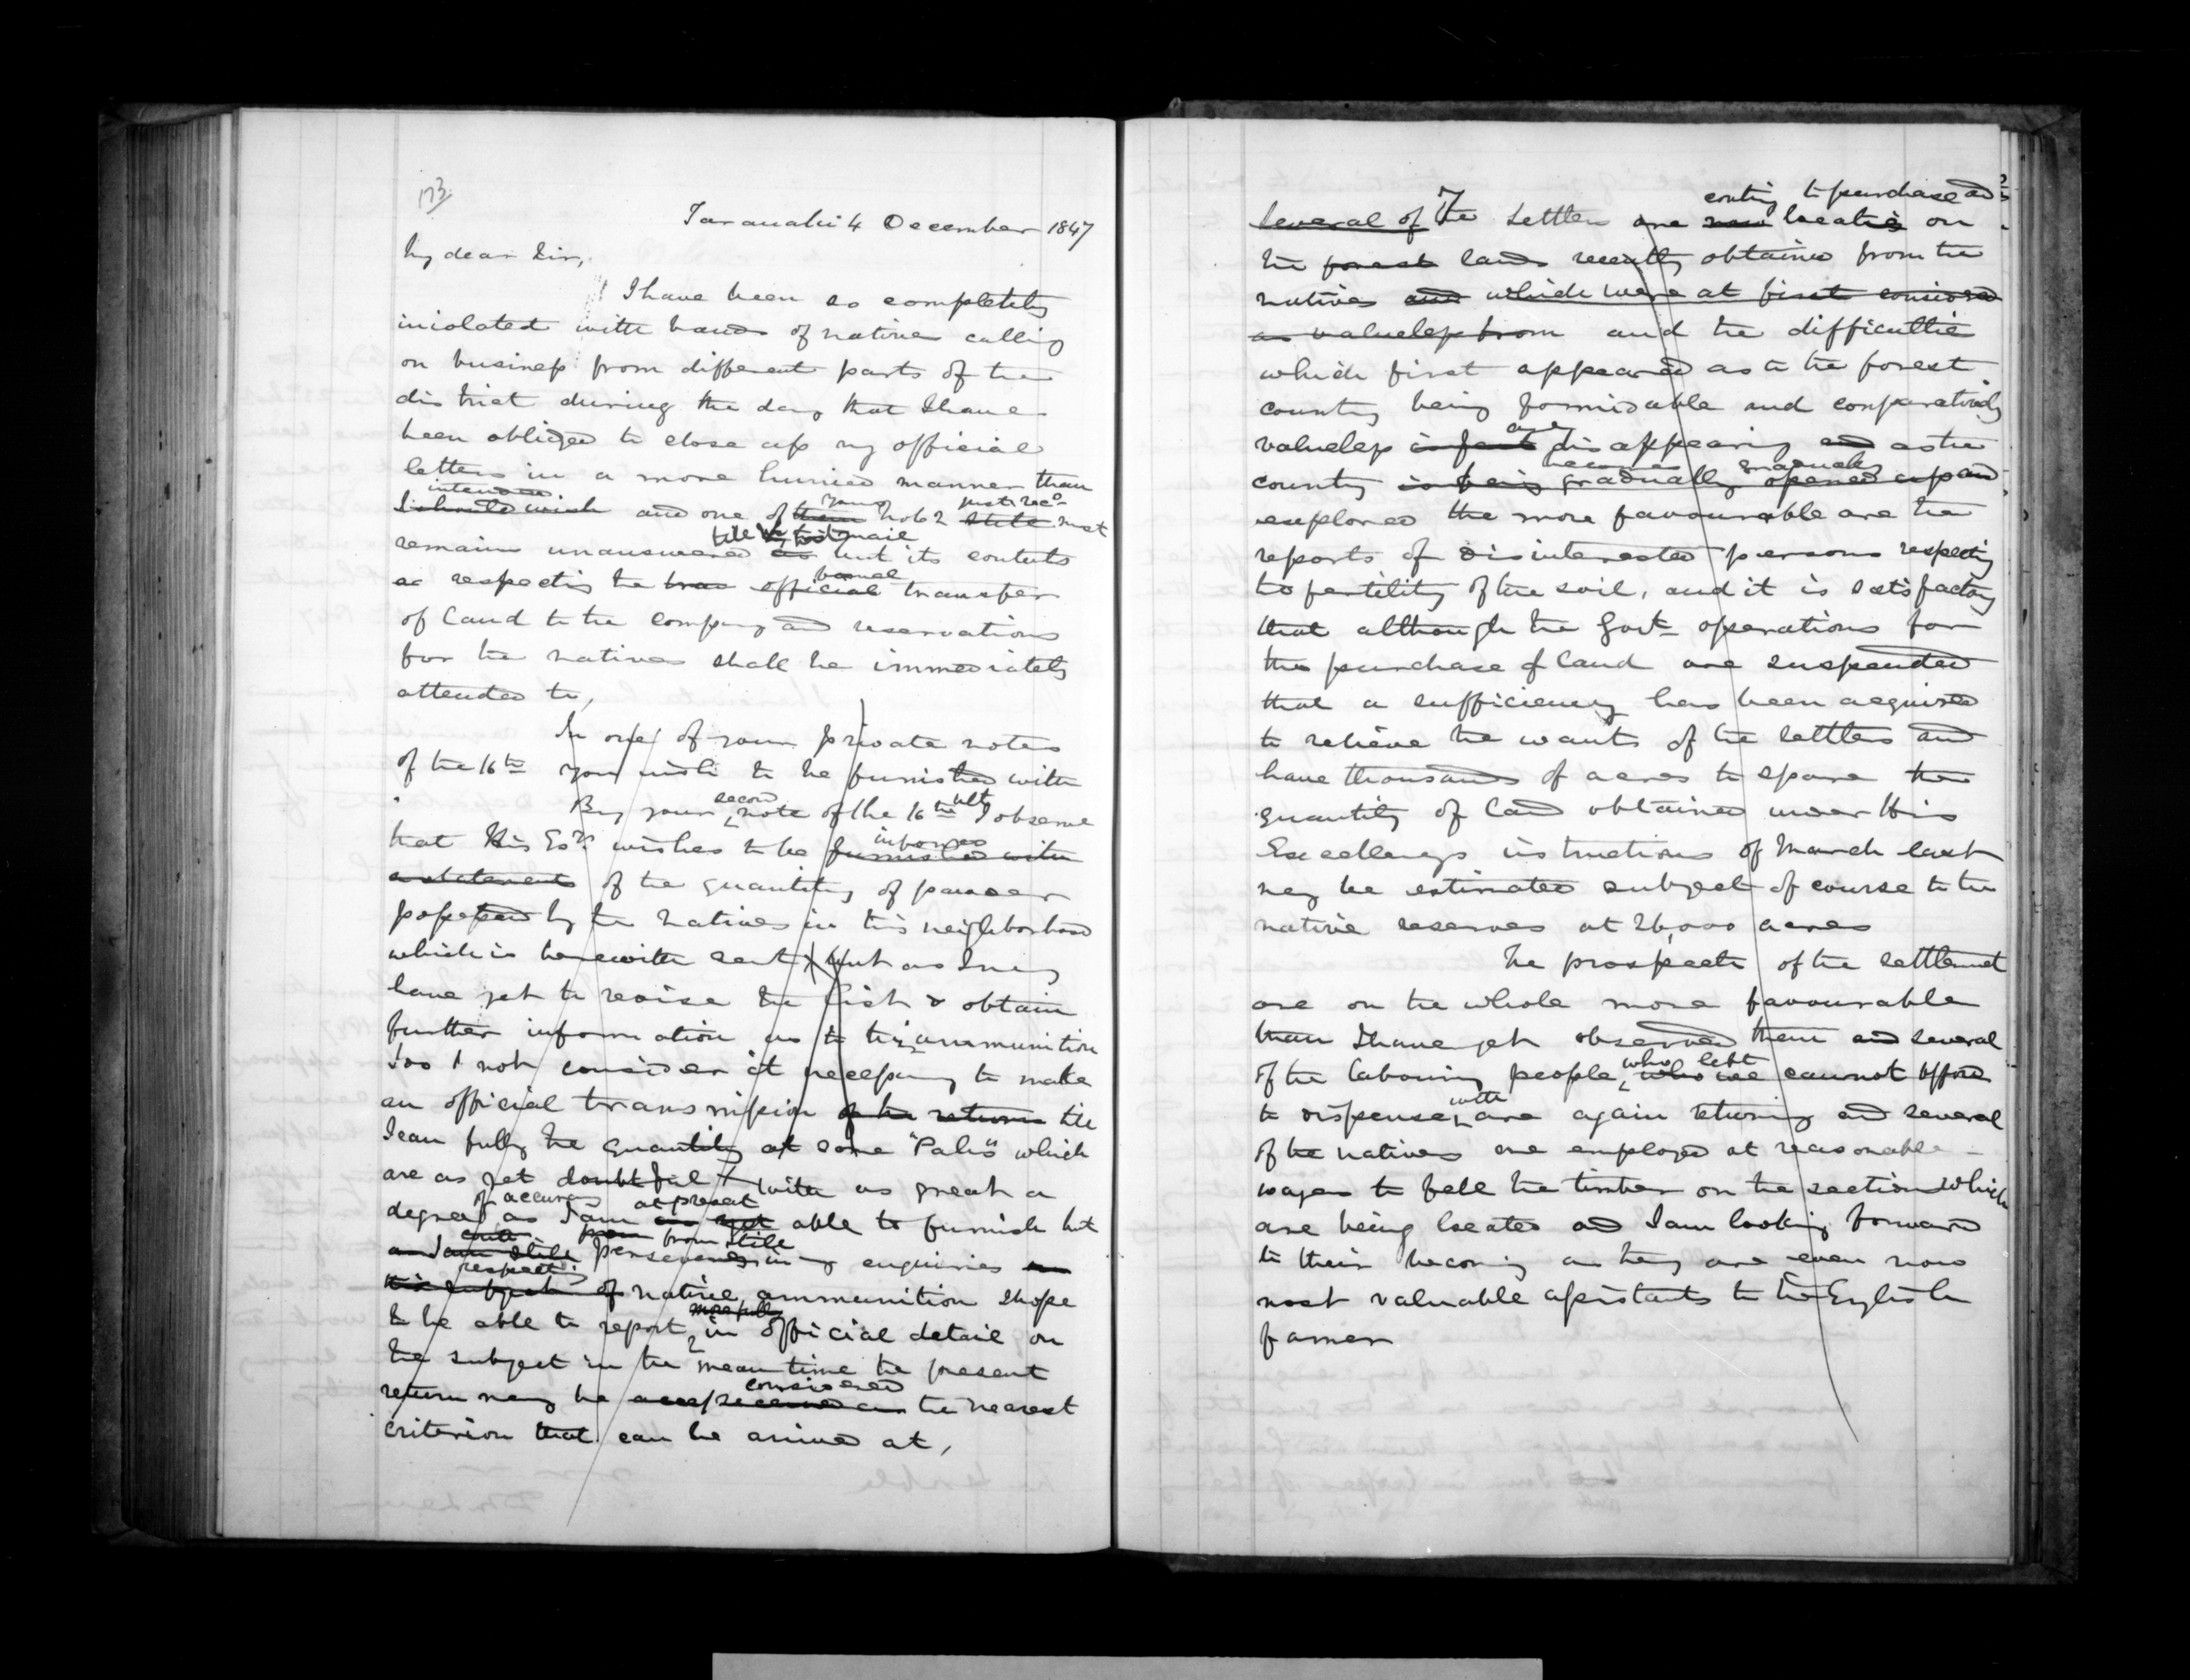 173
Taranaki 4 December 1847
My dear Sir,
I have been so completely
iniolated with bands of natives calling
on business from different parts of the
district during the day that I have
been obliged to close up my official
letters in a more hurried manner than
intended
I should wish and one of them your No 62 just recd state must
till next mail
remain unanswered as but its contents
as respecting the official formal transfer
of land to the Company and reservations
for the natives shall be immediately
attended to,
In one of your private notes
of the 16th you wish to be furnished with
By your second note of the 16th ult I observe
that His Exy wishes to be informed furnished with
a statement of the quantity of powder
possessed by the natives in this neighborhood
which is herewith sent but as I may
have yet to revise the list & obtain
further information as to their ammunition
I do not consider it necessary to make
an official transmission of the return till
I can fully the quantity at some "Pahs" which
are as yet doubtful with as great a
degree of accuracy as I am as yet at present able to furnish but
as I am still from still persevering in my enquiries on
this subject respecting of native ammunition I hope
to be able to report more fully in official detail on
the subject in the mean time the present
return may be considered as the nearest
criterion that can be arrived at,
Several of The Settlers are now locating on
coming to purchase and
the forest lands recently obtained from the
natives and which were at first considered
as valueless from and the difficulties
which first appeared as to the forest
country being formidable and comparatively
valueless in fact are disappearing and as the
country is being gradually opened up and becomes gradually
explored the more favourable are the
reports of disinterested persons respecting
the fertility of the soil, and it is satisfactory
that although the Govt operations for
the purchase of land are suspended
that a sufficiency has been acquired
to relieve the wants of the settlers and
have thousands of acres to spare the
quantity of land obtained under His
Excellencys instructions of March last
may be estimated subject of course to the
native reserves at 26,000 acres
The prospects of the settlement
are on the whole more favourable
than I have yet observed them and several
of the labouring people, who left who we cannot afford
to dispense with are again returning and several
of the natives are employed at reasonable
wages to fell the timber on the sections which
are being located and I am looking forward
to their becoming as they are even now
most valuable assistants to the English
farmer